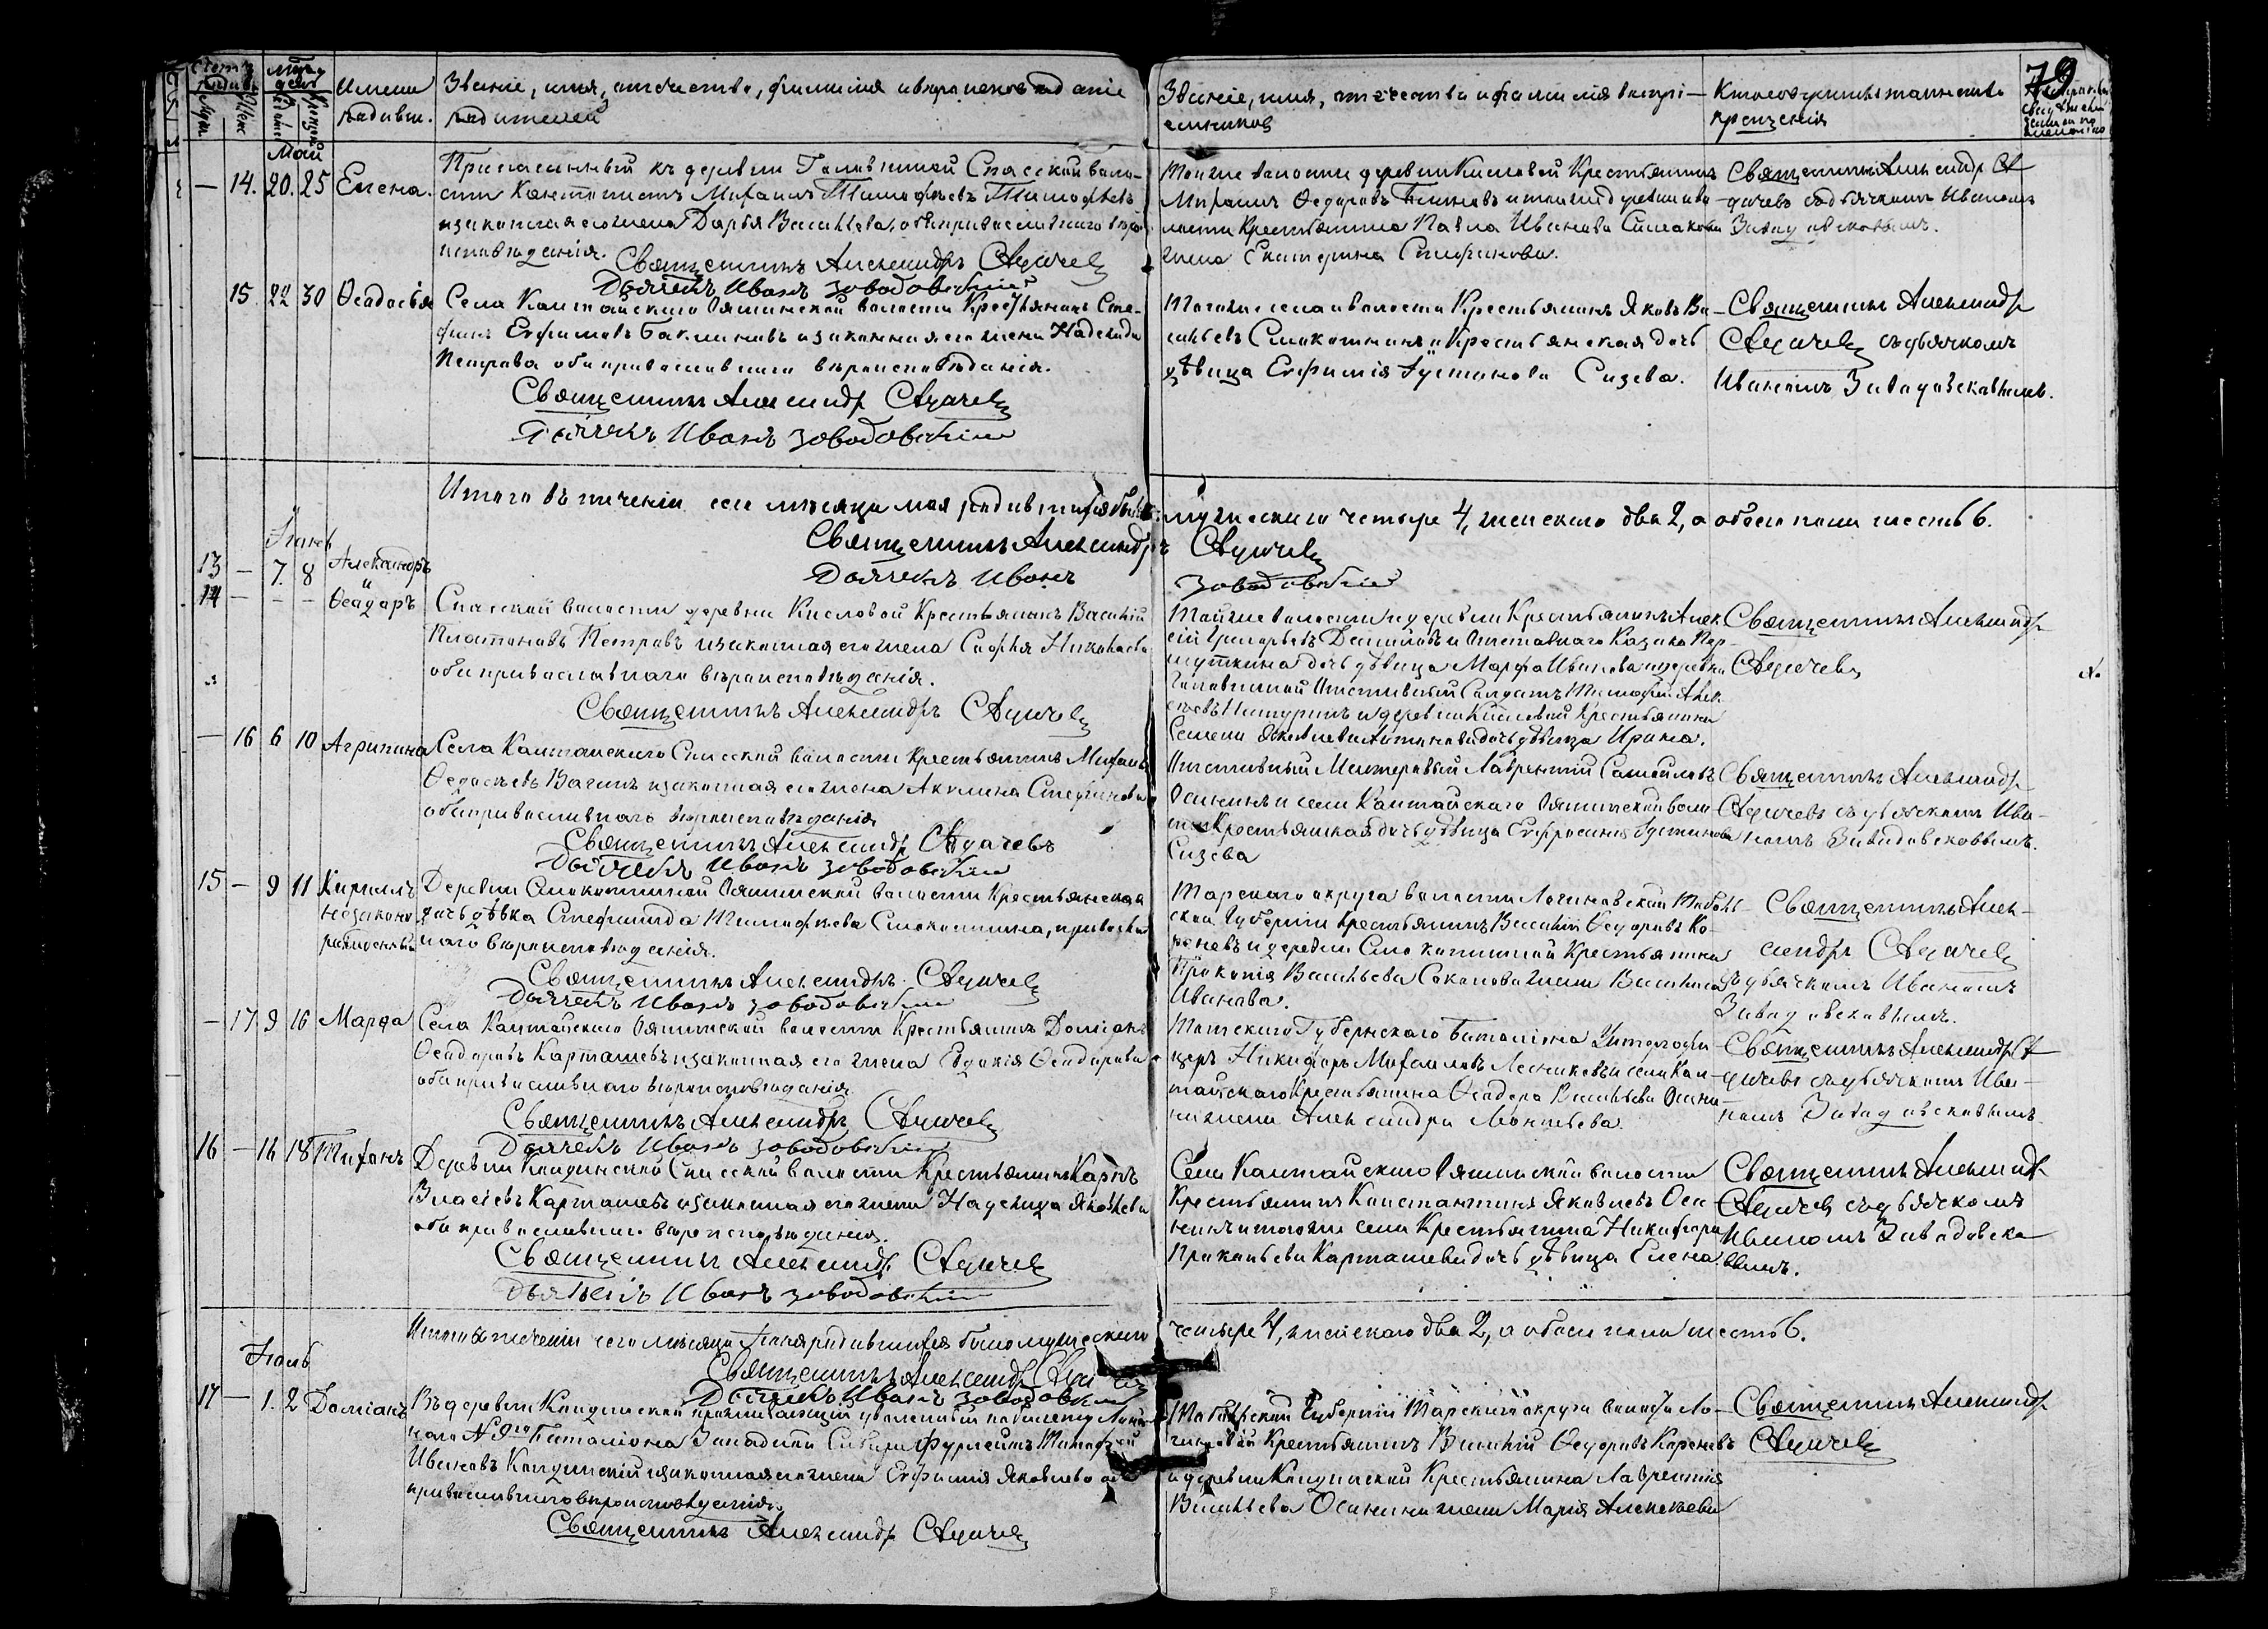 79
Счетъ родивш.
Муж. Жен.
Мѣсяцъ день
Имена родивш.
Званіе, имя, отчество, фамилія и вѣроисповѣданіе
родителей
Званіе, имя, отчество и фамилія воспріемниковъ
Кто совершилъ таинство
крещенія
Май
— 14. 20. 25 Елена.
Приписанный къ деревни Спасской воло-
сти Михаилъ Тимофѣевъ Тимофѣевъ
и законная его жена Дарья Васильева, оба православнаго вѣро-
исповѣданія.
Священникъ Александръ Адачевъ
Дьячекъ Иванъ Заводовскій
Той же волости деревни Кисловой Крестьянинъ
Михаилъ Ѳедоровъ и той же деревни и во-
лости Крестьянина Павла Иванова
жена Екатерина Стефанова.
Священникъ Александръ А-
дачевъ съ дьячкомъ Иваномъ
Заводовскимъ.
15 22 30 Ѳеодосія
Села Калтайскаго Ояшинской волости Крестьянинъ Сте-
фанъ Ефимовъ Баклановъ и законная его жена Надежда
Петрова оба православнаго вѣроисповѣданія.
Священникъ Александръ Адачевъ
Дьячекъ Иванъ Заводовскій
Того же села и волости Крестьянинъ Яковъ Ва-
сильевъ Смокотнинъ и Крестьянская дочь
дѣвица Евфимія Густинова Сизева.
Священникъ Александръ
Адачевъ съ дьячкомъ
Иваномъ Заводовскимъ.
Итого въ теченіи сего мѣсяца мая родившихся было: мужескаго четыре 4, женскаго два 2, а обоего пола шесть 6.
Священникъ Александръ Адачевъ
Дьячекъ Иванъ Заводовскій
Іюнь
13 — 7. 8 Александръ
и
14 — — — Ѳеодоръ
Спасской волости деревни Кисловой Крестьянинъ Василій
Платоновъ Петровъ и законная его жена Софья Николаева
оба православнаго вѣроисповѣданія.
Священникъ Александръ Адачевъ
Той же волости и деревни Крестьянинъ Алек-
сій Григорьевъ и Отставнаго Казака
дочь дѣвица Марфа Иванова и деревни
Головиной Отставный Солдатъ Тимофей Алек-
сѣевъ и деревни Кисловой Крестьянина
Семена дочь дѣвица Ирина.
Священникъ Александръ
Адачевъ
— 16 6 10 Агрипина
Села Калтайскаго Спасской волости Крестьянинъ Михаилъ
Ѳедосѣевъ Вагинъ и законная его жена Акилина Стефанова
оба православнаго вѣроисповѣданія
Священникъ Александръ Адачевъ
Дьячекъ Иванъ Заводовскій
Отставный Мастеровый Лаврентій Самойловъ
Осининъ и села Калтайскаго Ояшинской воло-
сти Крестьянская дочь дѣвица Евфросинія Густинова
Сизева
Священникъ Александръ
Адачевъ съ дьячкомъ Ива-
номъ Заводовсковымъ.
15 — 9 11 Кириллъ
незаконно
рожденный
Деревни Смокотиной Ояшинской волости Крестьянская
дочь дѣвка Стефанида Тимофѣева Смокотнина, православ-
наго вѣроисповѣданія.
Священникъ Александръ Адачевъ
Дьячекъ Иванъ Заводовскій
Тарскаго округа волости Логиновской Тоболь-
ской Губерніи Крестьянинъ Василій Ѳедоровъ Ко-
реневъ и деревни Смокотиной Крестьянина
Прокопія Васильева Соколова жена Василиса
Иванова.
Священникъ Алек-
сандръ Адачевъ
съ дьячкомъ Иваномъ
Заводовсковымъ.
— 17 9 16 Марфа
Села Калтайскаго Ояшинской волости Крестьянинъ Доміанъ
Ѳеодоровъ Карташевъ и законная его жена Евдокія Ѳеодорова
оба православнаго вѣроисповѣданія
Священникъ Александръ Адачевъ
Дьячекъ Иванъ Заводовскій
Томскаго Губернскаго Баталіона Унтерофи-
церъ Никифоръ Михайловъ Лесниковъ и села Кал-
тайскаго Крестьянина Ѳеодора Васильева Осини-
на жена Александра Леонтьева.
Священникъ Александръ А-
дачевъ съ дьячкомъ Ива-
номъ Заводовсковымъ.
16 — 16 18 Тихонъ
Деревни Кандинской Спасской волости Крестьянинъ Карпъ
Власіевъ Карташевъ и законная его жена Надежда Яковлева
оба православнаго вѣроисповѣданія.
Священникъ Александръ Адачевъ
Дьячекъ Иванъ Заводовскій
Села Калтайскаго Ояшинской волости
Крестьянинъ Константинъ Яковлевъ Оси-
нинъ и того же села Крестьянина Никифора
Прокопьева Карташева дочь дѣвица Елена.
Священникъ Александръ
Адачевъ съ дьячкомъ
Иваномъ Заводовско
вымъ.
Итого въ теченіи сего мѣсяца Іюня родившихся было мужескаго четыре 4, женскаго два 2, а обоего пола шесть 6.
Священникъ Александръ Адачевъ
Дьячекъ Иванъ Заводовскій
Іюль
17 — 1. 2 Доміанъ
Въ деревни Кандинской проживающій уволенный по билету Линей-
наго № 9го Баталіона Западной Сибири Фурлейтъ Тимофей
Ивановъ Кандинскій и законная его жена Евфимія Яковлева оба
православнаго вѣроисповѣданія.
Священникъ Александръ Адачевъ
Тобольской Губерніи Тарскаго округа волости Ло-
гиновой Крестьянинъ Василій Ѳедоровъ Кореневъ
и деревни Кандинской Крестьянина Лаврентія
Васильева Осинина жена Марія Алексѣева
Священникъ Александръ
Адачевъ